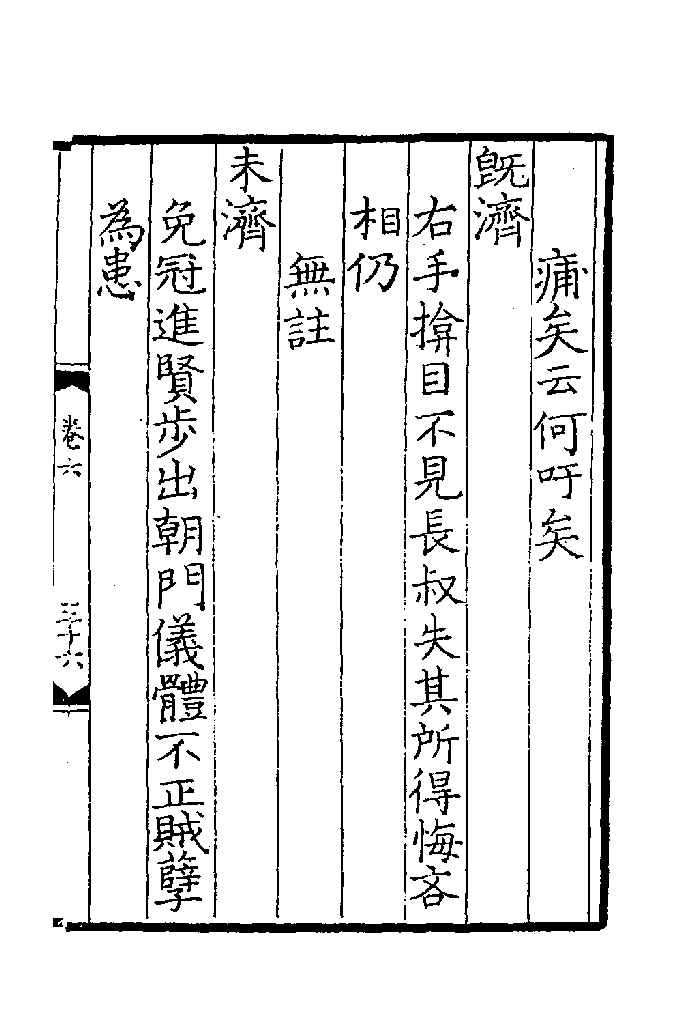 痡矣云何吁矣
旣濟
右手揜目不見長叔失其所得悔吝
相仍
無註
未濟
免冠進賢步出朝門儀體不正賊孽
為患
卷六
三十六